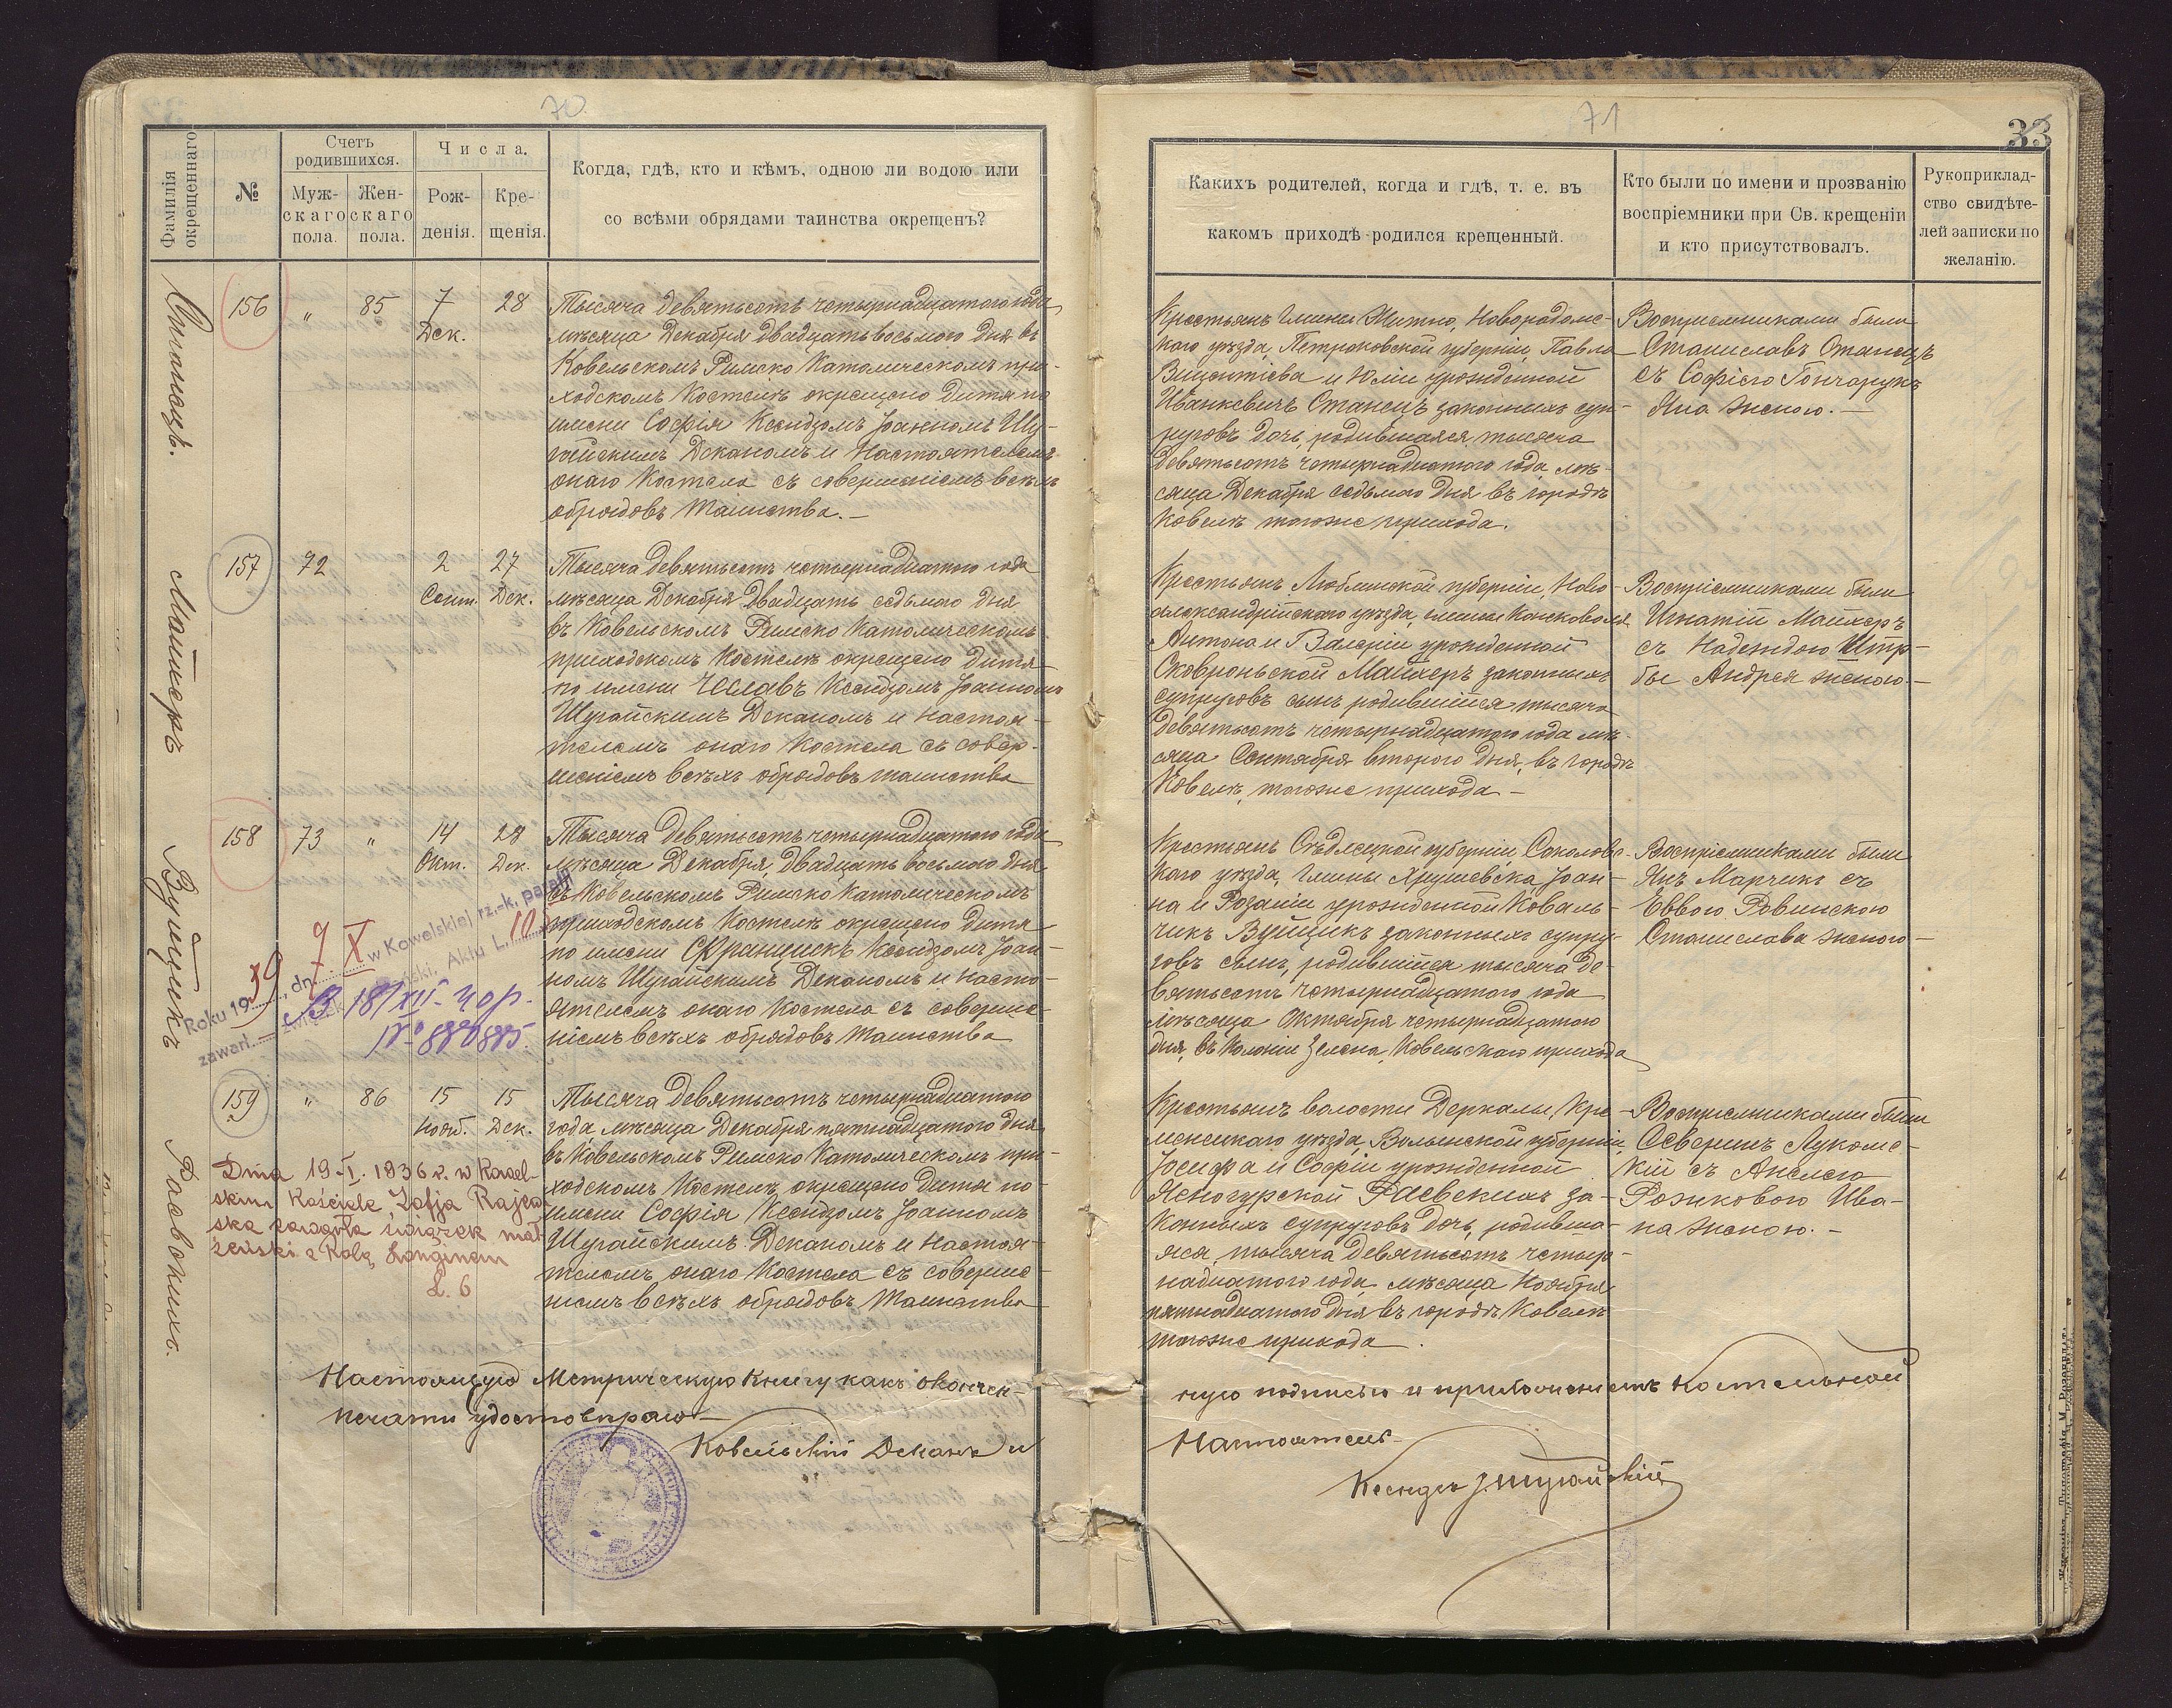 70
Фамилія окрещеннаго
№
Счетъ родившихся.
Муж-
скаго
пола.
Жен-
скаго
пола.
Числа.
Рож-
денія.
Кре-
щенія.
Когда, гдѣ, кто и кѣмъ, одною ли водою или
со всѣми обрядами таинства окрещенъ?
Станецъ.
156
"
85
7
Дек.
28
Тысяча девятьсотъ четырнадцатого года
мѣсяца Декабря двадцать восьмого дня въ
Ковельскомъ Римско Католическомъ при-
ходскомъ Костелѣ окрещено дитя по
имени Софія Ксендзомъ Іоанномъ Шу-
гайскимъ Деканомъ и Настоятелемъ
онаго Костела съ совершеніемъ всѣхъ
обрядовъ Таинства.—
Майхеръ
157
72
2
Сент.
27
Дек.
Тысяча девятьсотъ четырнадцатого года
мѣсяца Декабря двадцать седьмого дня
въ Ковельскомъ Римско Католическомъ
приходскомъ Костелѣ окрещено дитя
по имени Чеславъ Ксендзомъ Іоанномъ
Шугайскимъ Деканомъ и Настоя-
телемъ онаго Костела съ совер-
шеніемъ всѣхъ обрядовъ таинства
Вуйцикъ
158
73
"
14
Окт.
28
Дек.
Тысяча девятьсотъ четырнадцатого года
мѣсяца Декабря, двадцать восьмого дня
въ Ковельскомъ Римско Католическомъ
приходскомъ Костелѣ окрещено дитя
по имени Францискъ Ксендзомъ Іоан-
номъ Шугайскимъ Деканомъ и Насто-
ятелемъ онаго Костела съ соверше-
ніемъ всѣхъ обрядовъ Таинства
Roku 1939, dn. 7 X w Kowelskiej rz.-k. parafji
zawarł związek Aktu L. 10
18/XII-40 р.
№ 880885.
Раевскихъ.
159
"
86
15
Нояб.
15
Дек.
Тысяча девятьсотъ четырнадцатого
года мѣсяца Декабря пятнадцатого дня
въ Ковельскомъ Римско Католическомъ при-
ходскомъ Костелѣ окрещено дитя по
имени Софія Ксендзомъ Іоанномъ
Шугайскимъ Деканомъ и Настоя-
телемъ онаго Костела съ соверше-
ніемъ всѣхъ обрядовъ Таинства
Dnia 19-I. 1936 r. w Kowel-
skim Kościele Zofja Rajew-
ska zawarła związek mał-
żeński z Longinem
L. 6
Настоящую Метрическую Книгу какъ окончен-
печати удостовѣряю—
Ковельскій Деканъ и
71
33
Какихъ родителей, когда и гдѣ, т. е. въ
какомъ приходѣ родился крещенный.
Кто были по имени и прозванію
воспріемники при Св. крещеніи
и кто присутствовалъ.
Рукоприклад-
ство свидѣте-
лей записки по
желанію.
Крестьянъ Гмины Житно, Новорадомс-
каго уѣзда Петроковской губерніи, Павла
Викентіева и Юліи урожденной
Иванкевичъ Станецъ законныхъ суп-
руговъ дочь, родившаяся тысяча
девятьсотъ четырнадцатого года мѣ-
сяца Декабря седьмого дня въ городѣ
Ковелѣ тогоже прихода.
Воспріемниками были
Станиславъ Станецъ
съ Софіею Гончарукъ
Яна женою.—
Крестьянъ Люблинской губерніи, Ново-
александрійскаго уѣзда, гмины Консковоля
Антона и Валеріи урожденной
Сковроньской Майхеръ законныхъ
супруговъ сынъ родившійся тысяча
девятьсотъ четырнадцатого года мѣ-
сяца Сентября второго дня, въ городѣ
Ковелѣ, тогоже прихода—
Воспріемниками были
Игнатій Майхеръ
съ Надеждою
бы Андрея женою.—
Крестьянъ Сѣдлецкой губерніи Соколовс-
каго уѣзда, Гмины Хрущевска, Іоан-
на и Розаліи урожденной Коваль-
чикъ Вуйцикъ законныхъ супру-
говъ сынъ, родившійся тысяча де-
вятьсотъ четырнадцатого года
мѣсяца Октября четырнадцатого
дня, въ Колоніи Зелена, Ковельскаго прихода
Воспріемниками были
Янъ Марчикъ съ
Еввою Ровинскою
Станислава женою—
Крестьянъ волости Деркалы, Кре-
менецкаго уѣзда, Волынской губерніи
Іосифа и Софіи урожденной
Ясногурской Раевскихъ за-
конныхъ супруговъ дочь, родивша-
яся, тысяча девятьсотъ четыр-
надцатого года, мѣсяца Ноября
пятнадцатого дня въ городѣ Ковелѣ
тогоже прихода.
Воспріемниками были
Северинъ Лукомс-
кій съ Анелею
Розиковою Ива-
на женою.—
ную подписью и приложеніемъ Костельной
Настоятель
Ксендзъ І. Шугайскій